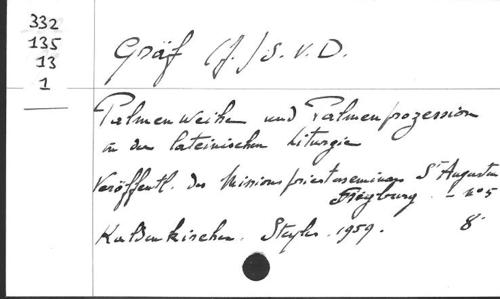 332
135
13
1
Gräf (J.) S.V.D.
Palmenweihe und Palmenprozession
in der lateinischen Liturgie
Veröffentl. des Missionspriesterseminars St Augustin
Siegburg. - no 5
Kaldenkirchen. Steyler. 1959. 8°